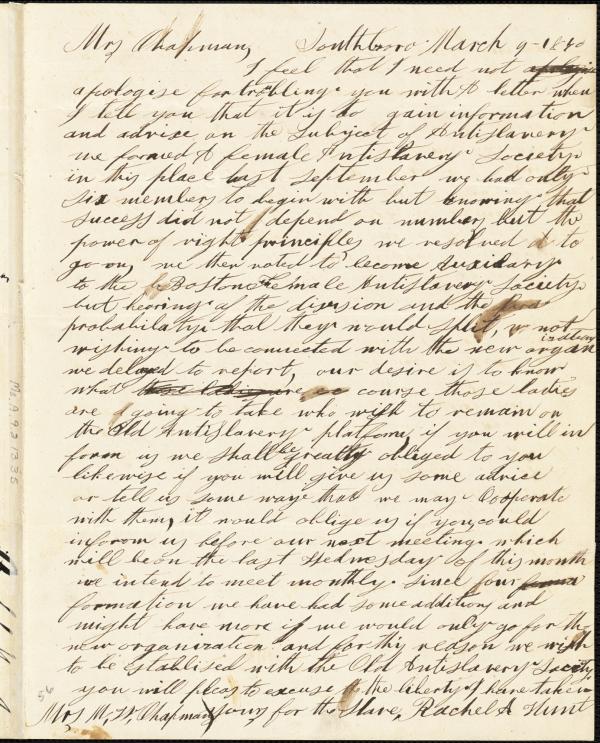 Mrs Chapman, Southboro March 9-1840
I feel that I need not
apologise for trobling you with A letter when
I tell you that it is to gain information
and advice on the Subject of Antislavery
we formed A female Antislavery Society
in this place last September we had only
six members to begin with but knowing that
success did not depend on numbers but the
power of right principles we resolved to
go on, we then voted to become Auxilary
to the Boston Female Antislavery Society
but hearing of the division and the
probabilaty that they would split, & not
wishing to be connected with the new organ
ization
we delayed to report, our desire is to know
what course those ladies
are going to take who wish to remain on
the Old Antislavery platform, if you will in
form us we shall be greatly obliged to you
likewise if you will give us some advice
or tell us some way that we may Cooperate
with them, it would oblige us if you could
inform us before our next meeting which
will be on the last Wednesday of this month
we intend to meet monthly. Since four
formation we have had some additions and
might have more if we would only go for the
new organization and for this reason we wish
to be Establised with the Old Antislavery Society
you will pleas to excuse the liberty I have taken
Mrs M. W. Chapman, yours for the Slave, Rachel A Hunt
56
Ms.A.9.2.13.35